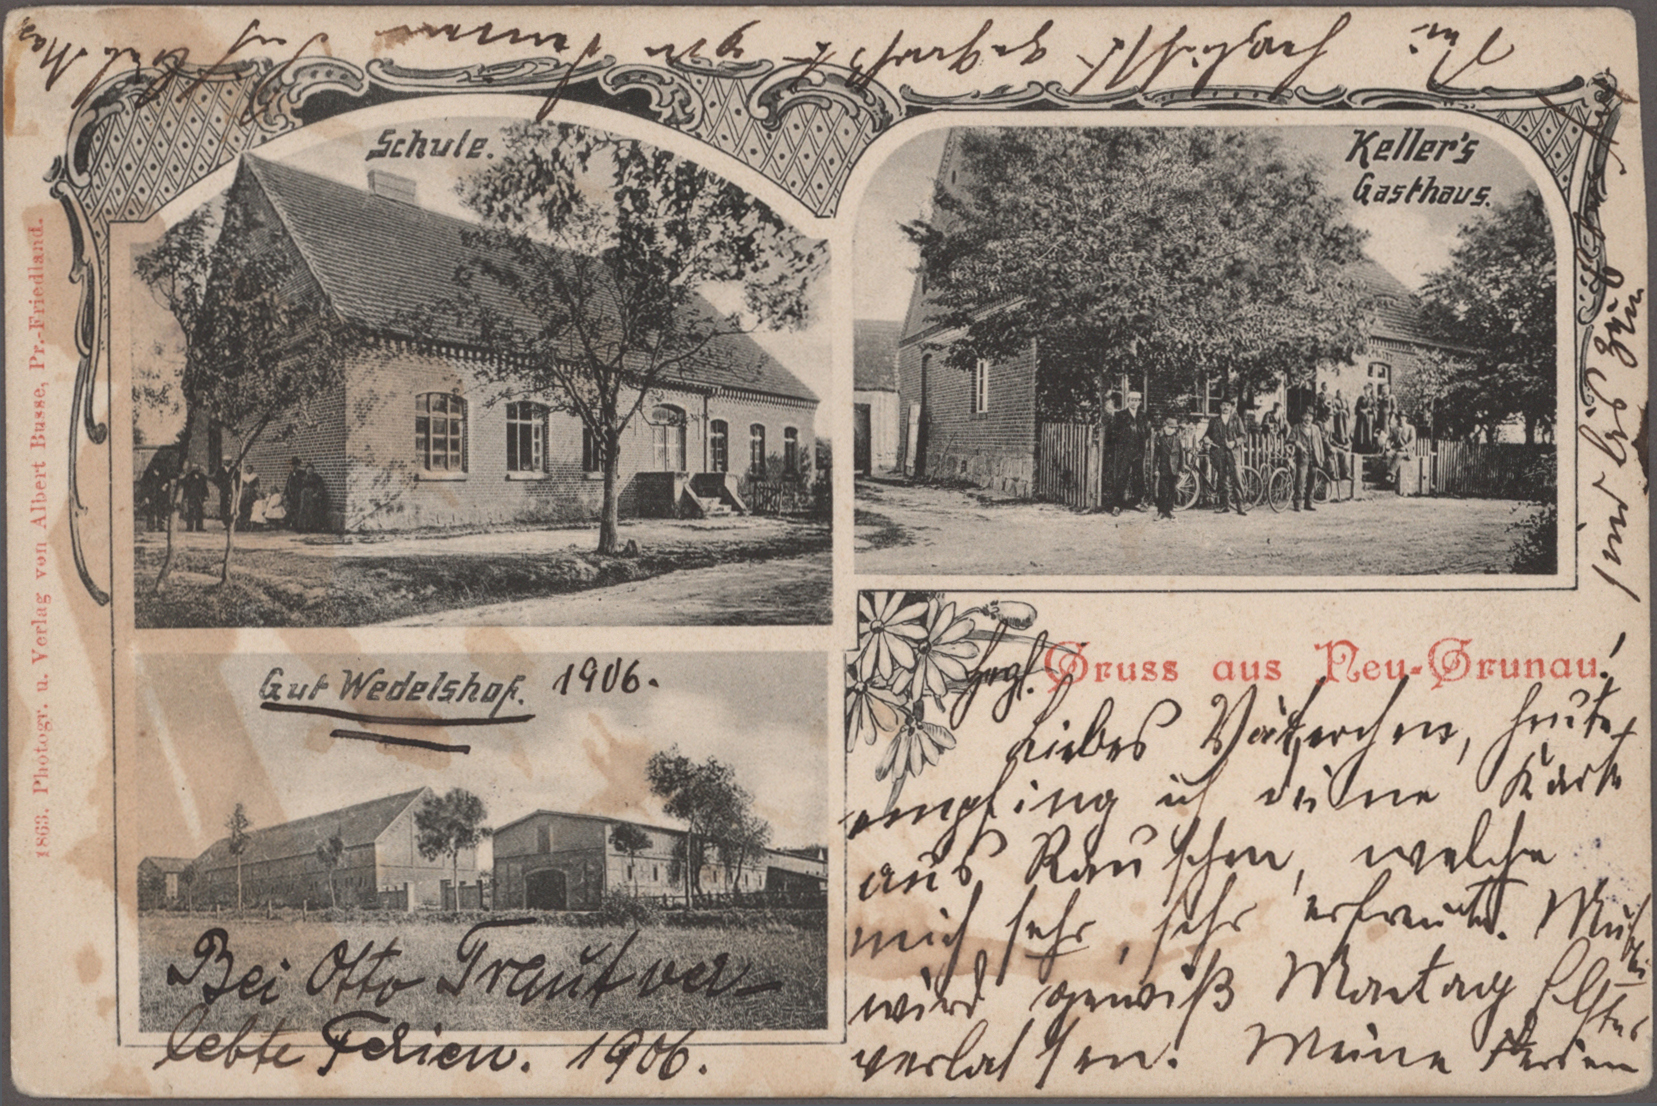 Schule.
Keller's
Gasthaus.
Gut Wedelshof. 1906.
Bei Otto Traut ver-
lebte Ferien. 1906.
1863. Photogr. u. Verlag von Albert Busse, Pr.-Friedland.
Gruss aus Neu-Grunau!
Liebes Väterchen, heute
empfing ich deine Karte
aus Rauschen, welche
mich sehr, sehr erfreute.
wird gewiß Montag
verlassen. Meine Ferien
sind bis zum